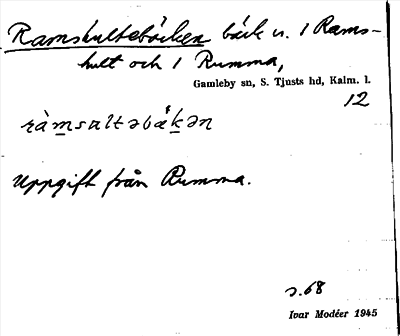 Ramshultebäcken bäck n. I Rams-
hult och i Rumma,
Gamleby sn, S. Tjusts hd, Kalm. l.
12
ràmsɑltəbǽkən
Uppgift från Rumma.
s. 68
Ivar Modéer 1945